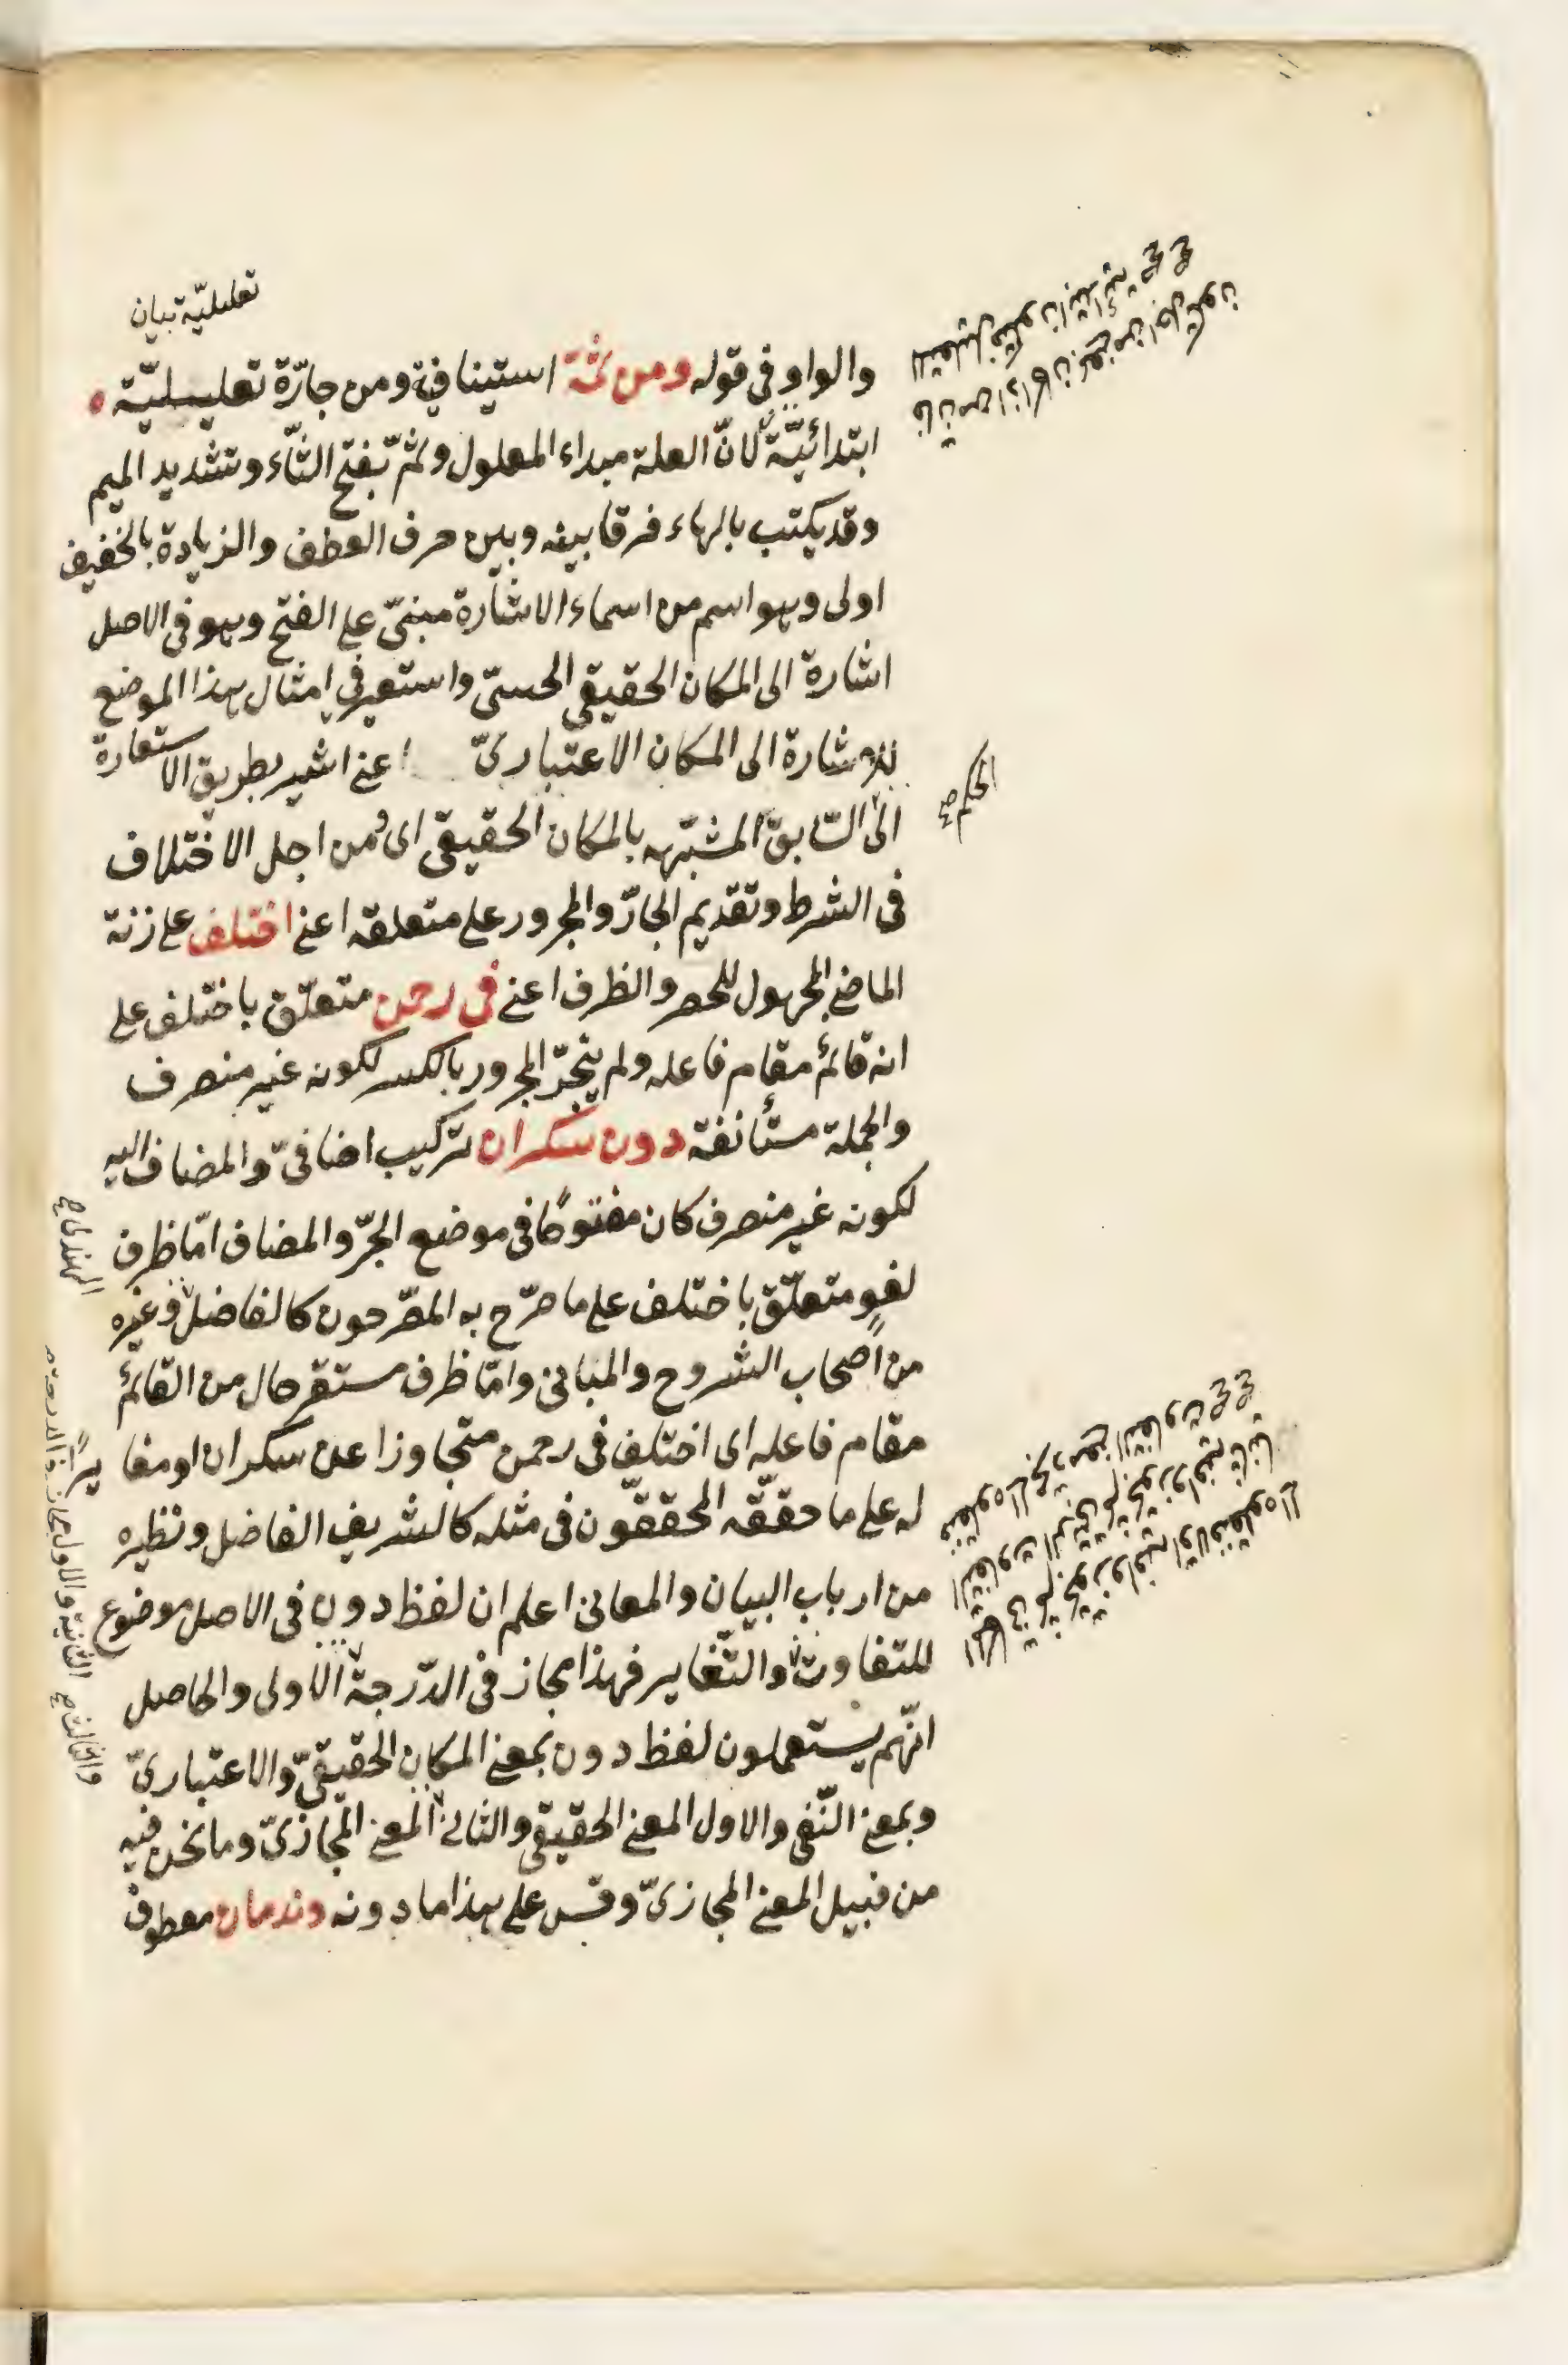 تعليليّة بيان
والواو فى قوله ومن ثمّة استينافية ومن جارّة تعليليّة
ابتدائيّة لانّ العلة مبداء المعلول وثمّ بفتح الثّاء وتشديد الميم
وقد يكتب بالهاء فرقا بينه وبين حرف العطف والزيادة بالخفيف
اولى وهو اسم من اسماء الاشارة مبنىّ على الفتح وهو فى الاصل
اشارة الى المكان الحقيقى الحسىّ واستعير فى امثال هذا الموضع
للاشارة الى المكان الاعتبارىّ اعنے اشير بطريق الاستعارة
الى السّابق المشبّهه بالمكان الحقيقى اى ومن اجل الاختلاف
فى الشرط وتقديم الجارّ والمجرور على متعلقه اعنے اختلف على زنة
الماضے المجهول للحصر والظرف اعنے فى رحمن متعلّق باختلف على
انه قائم مقام فاعله ولم ينجرّ المجرور بالكسر لكونه غير منصرف
والجملة مستأنفة دون سكران تركيب اضافىّ والمضاف اليه
لكونه غير منصرف كان مفتوحًا فى موضع الجرّ والمضاف امّا ظرف
لغو متعلّق باختلف على ما صرّح به المصّرحون كالفاضل وغيره
من اصحاب الشروح والمبانى وامّا ظرف مستقر حال من القائم
مقام فاعله اى اختلف فى رحمن متجاوزا عن سكران او مغايرًا
له على ما حققّه المحققّون فى مثله كالشريف الفاضل ونظيره
من ارباب البيان والمعانى اعلم ان لفظ دون فى الاصل موضوع
للتفاوت والتّغاير فهذا مجاز فى الدّرجة الاولى والحاصل
انّهم يستعملون لفظ دون بمعنے المكان الحقيقىّ والاعتبارىّ
وبمعنے النّفى والاول المعنے الحقيقى والثانى المعنے المجازىّ وما نحن فيه
من قبيل المعنے المجازىّ وقس على هذا ما دونه وندمان معطوف
الحكم صح
الهندى صح
والثالث صح